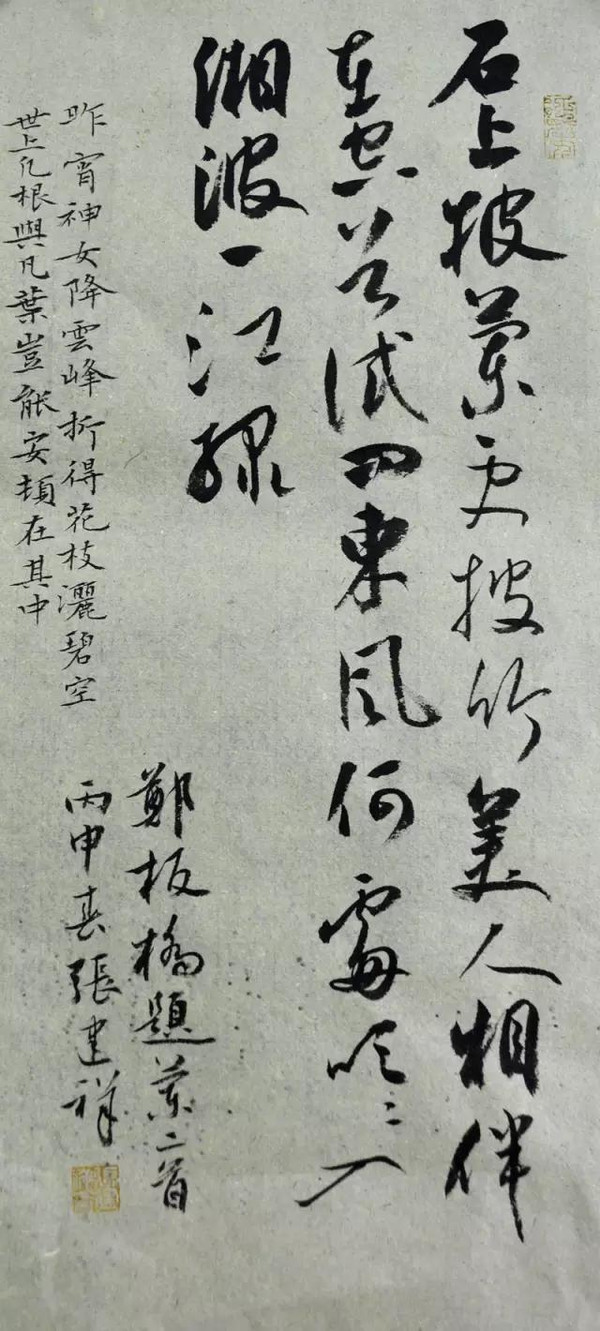 石上披蘭更披竹美人相伴
在空谷試問東風何處吹〻入
湘波一江綠
昨宵神女降雲峰折得花枝灑碧空
世上凡根與凡葉豈能安頓在其中
鄭板橋題蘭二首
丙申春張建祥